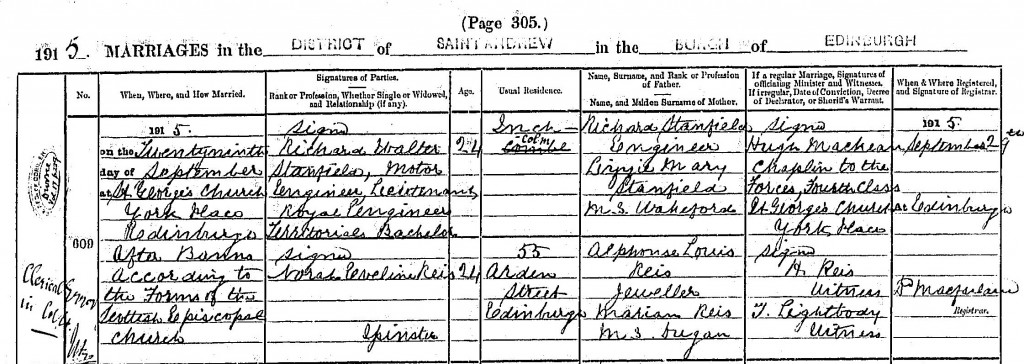 (Page 305.)
1915. MARRIAGES in the DISTRICT of SAINT ANDREW in the BURGH of EDINBURGH
No.
When, Where, and How Married.
Signatures of Parties.
Rank or Profession, Whether Single or Widowed,
and Relationship (if any).
Age.
Usual Residence.
Name, Surname, and Rank or Profession
of Father.
Name, and Maiden Surname of Mother.
If a regular Marriage, Signatures of
officiating Minister and Witnesses.
If irregular, Date of Conviction, Decree
of Declarator, or Sheriff's Warrant.
When & Where Registered,
and Signature of Registrar.
609
1915.
on the Twentyninth
day of September
at St. George's Church
York Place
Edinburgh
After Banns
According to
the Forms of the
Scottish Episcopal
Church
Signed
Richard Walter
Stanfield, Motor
Engineer, Lieutenant,
Royal Engineer
Territorials Bachelor
Signed
Norah Eveline Reis
Spinster
24
24
Inch-
Colm
Combe
55
Arden
Street
Edinburgh
Richard Stanfield
Engineer
Lizzie Mary
Stanfield
M.S. Wakeford
Alphonse Louis
Reis
Jeweller
Marian Reis
M.S. Dugan
Signed
Hugh Maclean
Chaplin to the
Forces, Fourth Class
St George's Church
York Place
Signed
H. Reis
Witness
T. Lightbody
Witness
1915
September 29th
at Edinburgh
Macfarlane
Registrar.
Clerical Error
in Col. 4.